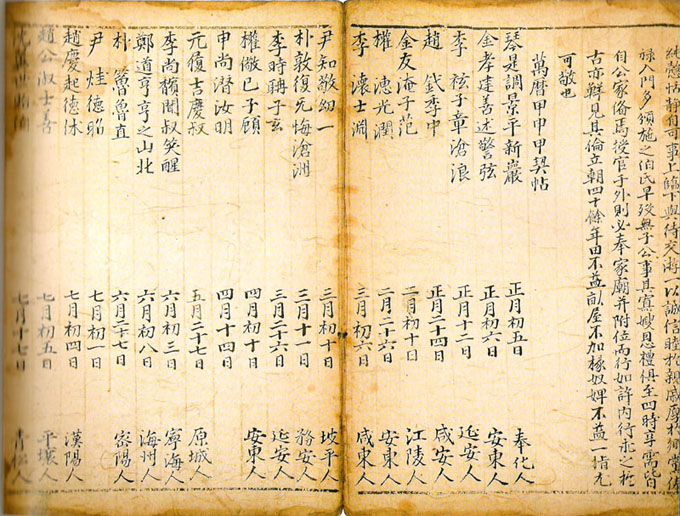 純懿怙靜自可事上臨下與待交游一以誠信睦於親戚厚於鄕黨俸
祿入門多頒施之伯氏早歿無子公事其寡嫂恩禮俱至四時享需皆
自公家備焉授官于外則必奉家廟幷附位而行如許內行求之於
古亦鮮見其倫立朝四十餘年田不益畝屋不加椽奴婢不益一指尤
可敬也
萬曆甲申甲契帖
琴是調景平新巖 正月初五日 奉化人
金孝建善述警弦 正月初六日 安東人
李 䘵子章滄浪 正月十二日 延安人
趙 釴季中 正月二十四日 咸安人
金友淹子范 二月初十日 江陵人
權 憓光潤 二月二十六日 安東人
李 瀼士淵 三月初六日 咸東人
尹知敬幼一 三月初十日 坡平人
朴敦復无悔滄洲 三月十一日 務安人
李時聃子玄 三月二十六日 延安人
權儆已子顧 四月初十日 安東人
申尚潜汝明 四月十四日
元履吉慶叔 五月二十七日 原城人
李尚馪聞叔笑醒 六月初三日 寧海人
鄭道亨亨之山北 六月初八日 海州人
朴 簪魯直 六月二十七日 密陽人
尹 烓德昭 七月初一日
趙慶起德休 七月初四日 漢陽人
趙公淑士善 七月初五日 平壤人
七月十七日 靑松人